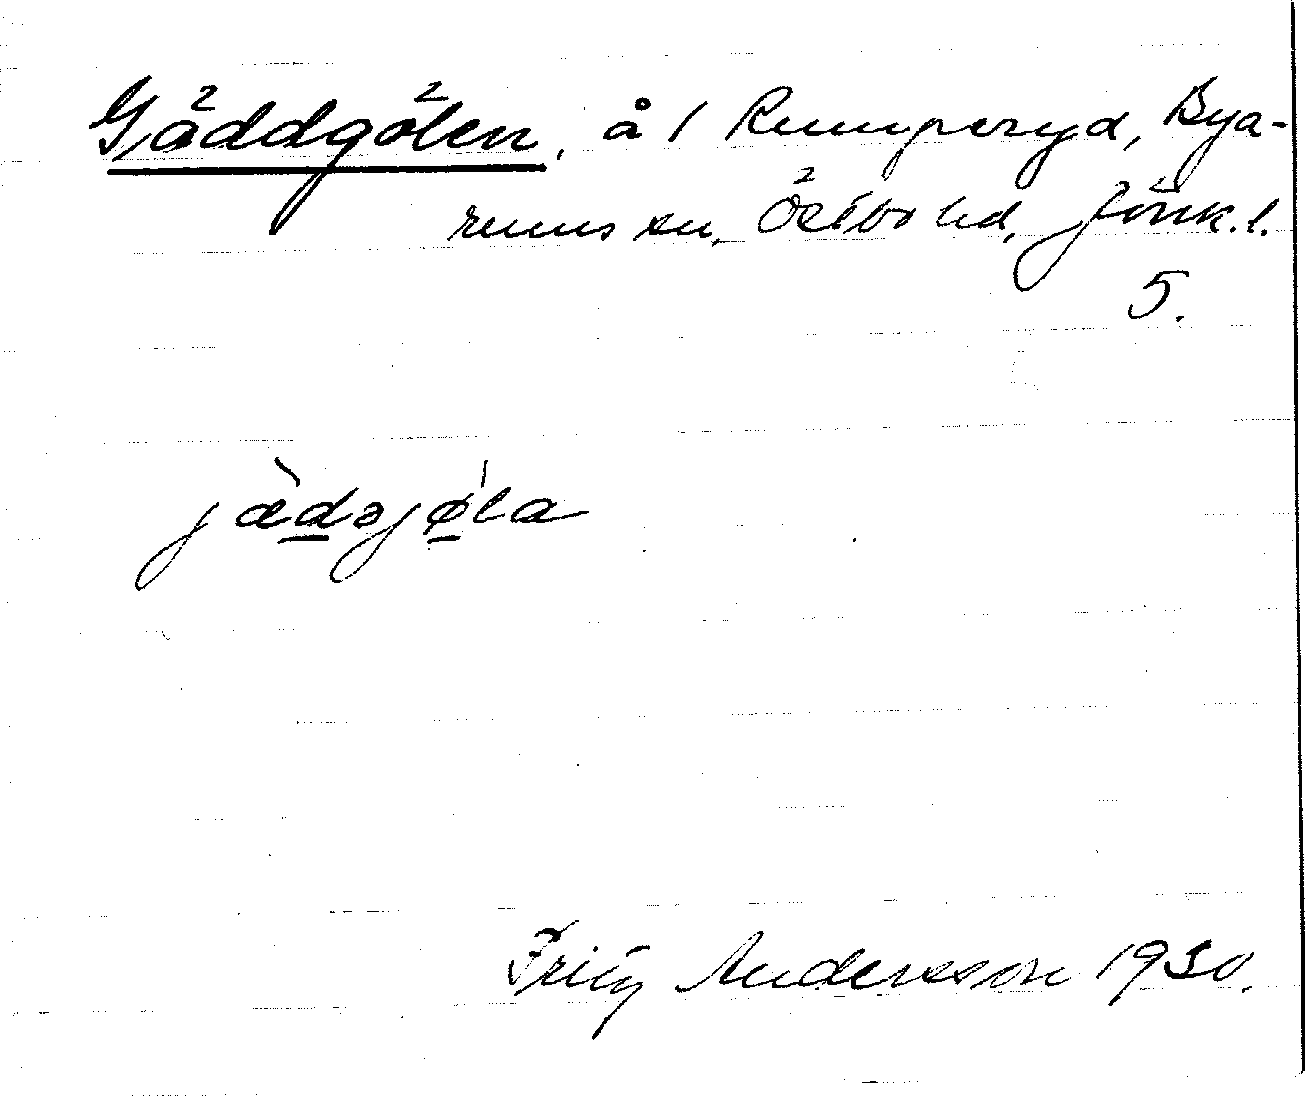 Gäddgölen, å 1 Rumperyd, Bya-
rums sn, Östbo hd, Jönk. l.
5.
jæ̀dəjø̀la
Fritz Andersson 1930.